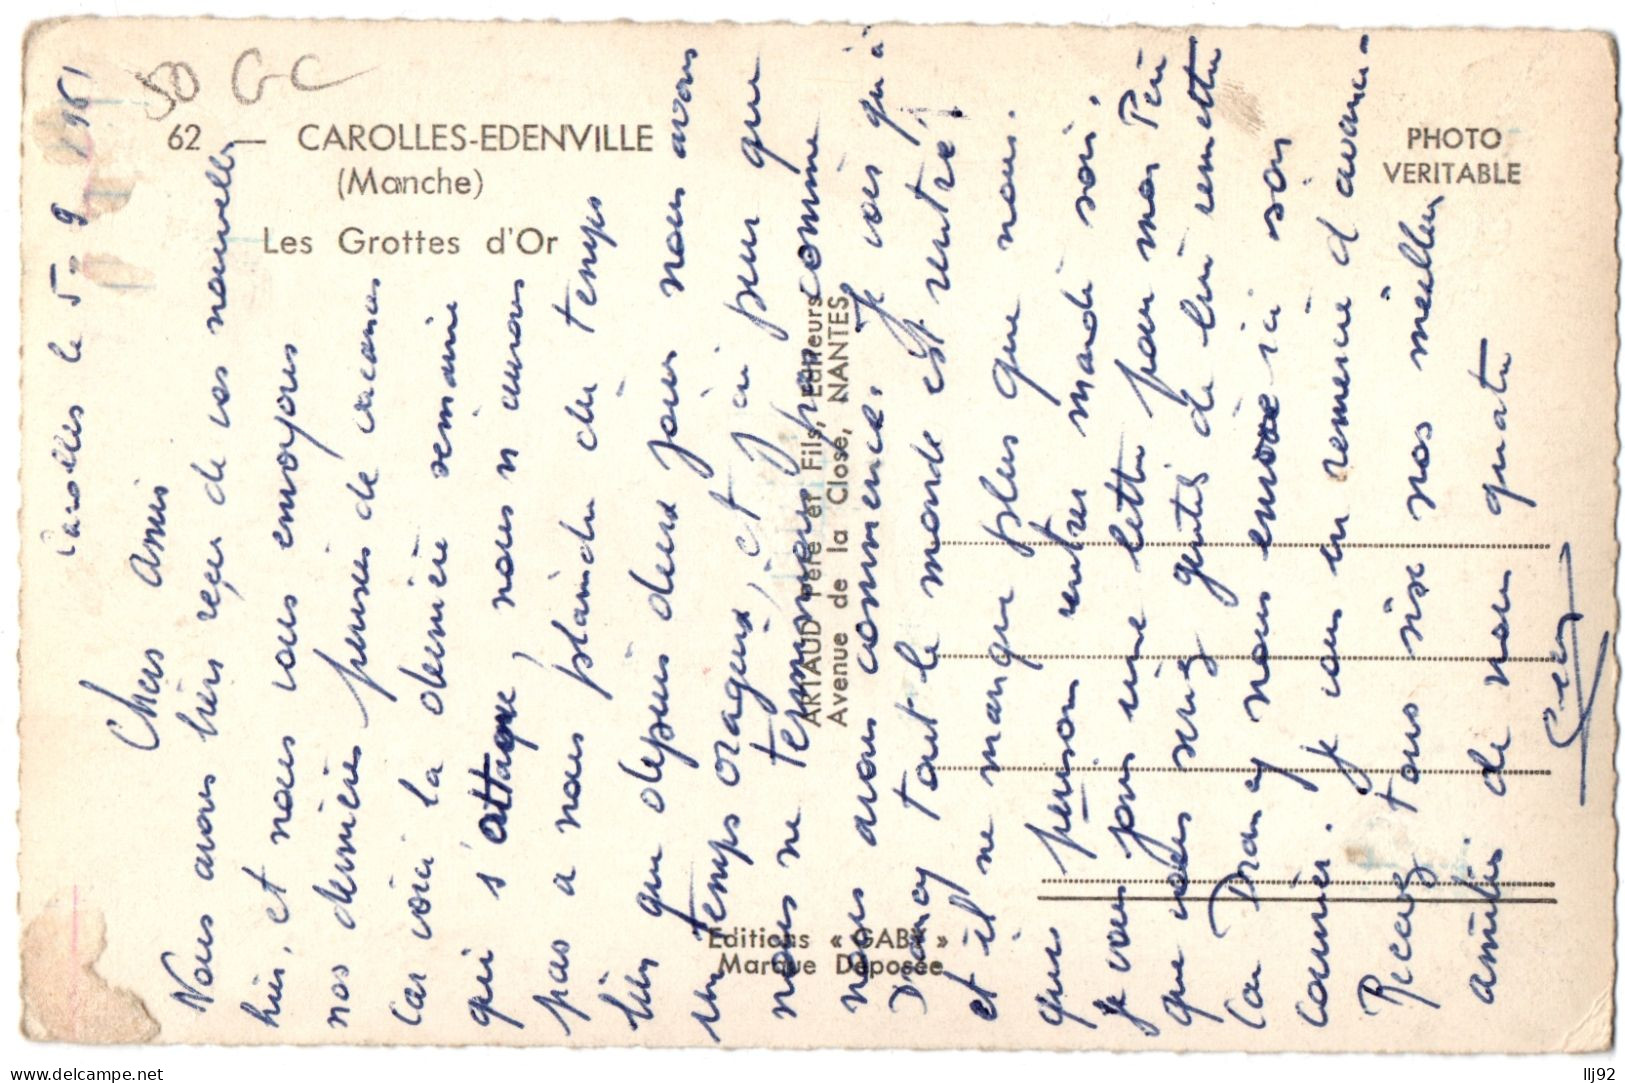 50 GC
62 — CAROLLES-EDENVILLE
(Manche)
Les Grottes d'Or
PHOTO
VERITABLE
ARTAUD Père et Fils, Editeurs
Avenue de la Close, NANTES
Editions « GABY »
Marque Déposée
Carolles le 5-9 1961
Chers Amis
Nous avons bien reçu de vos nouvelles
hier, et nous vous envoyons
nos dernières pensées de vacances
car voici la dernière semaine
qui s'attaque, nous n'avons
pas a nous plaindre du temps
bien que depuis deux jours nous avons
un temps orageux, c'est j'ai peur que
nous ne terminions pas comme
nous avons commencé. Je vois qu'à
Drancy tout le monde est rentré
et il ne manque plus que nous.
que
Je vous joins une lettre pour mon Père
que vous seriez gentils de lui remettre
car Drancy nous envoie ici son
courrier. Je vous en remercie d'avance -
Recevez tous six nos meilleures
amitiés de nous quatre
delcampe.net
llj92